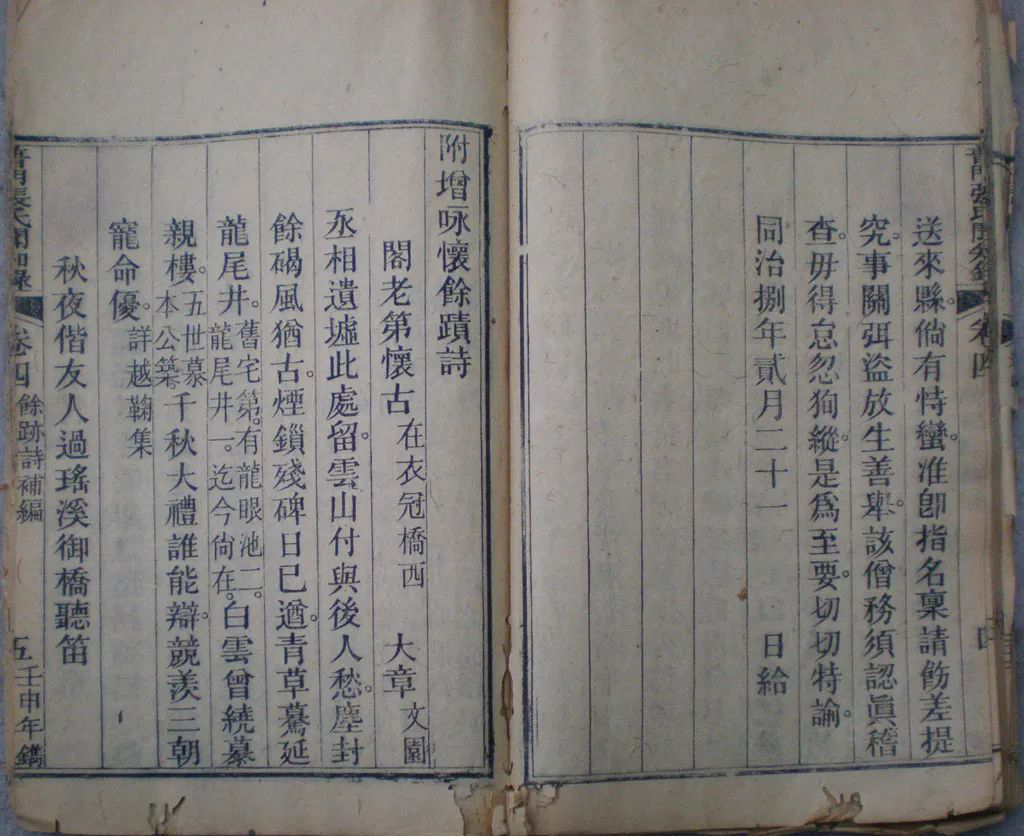 普門張氏聞知錄 卷四
送來縣。倘有恃蠻。准卽指名稟請飭差提
究。事關弭盜放生善舉。該僧務須認眞稽
查。毋得怠忽狥縱。是爲至要。切切特諭。
同治捌年貳月二十一 日給
附增咏懷餘蹟詩
閣老第懷古 在衣冠橋西 大章 文園
丞相遺墟此處留。雲山付與後人愁。塵封
餘碣風猶古。煙鎖殘碑日已遒。青草驀延
龍尾井。舊宅第。有龍眼池二。龍尾井一。迄今尙在。白雲曾繞慕
親樓。五世慕本公築千秋大禮誰能辯。競羨三朝
寵命優。詳越鞠集
秋夜偕友人過瑤溪御橋聽笛
普門張氏聞知錄 卷四 餘跡詩補編 五 壬申年鐫